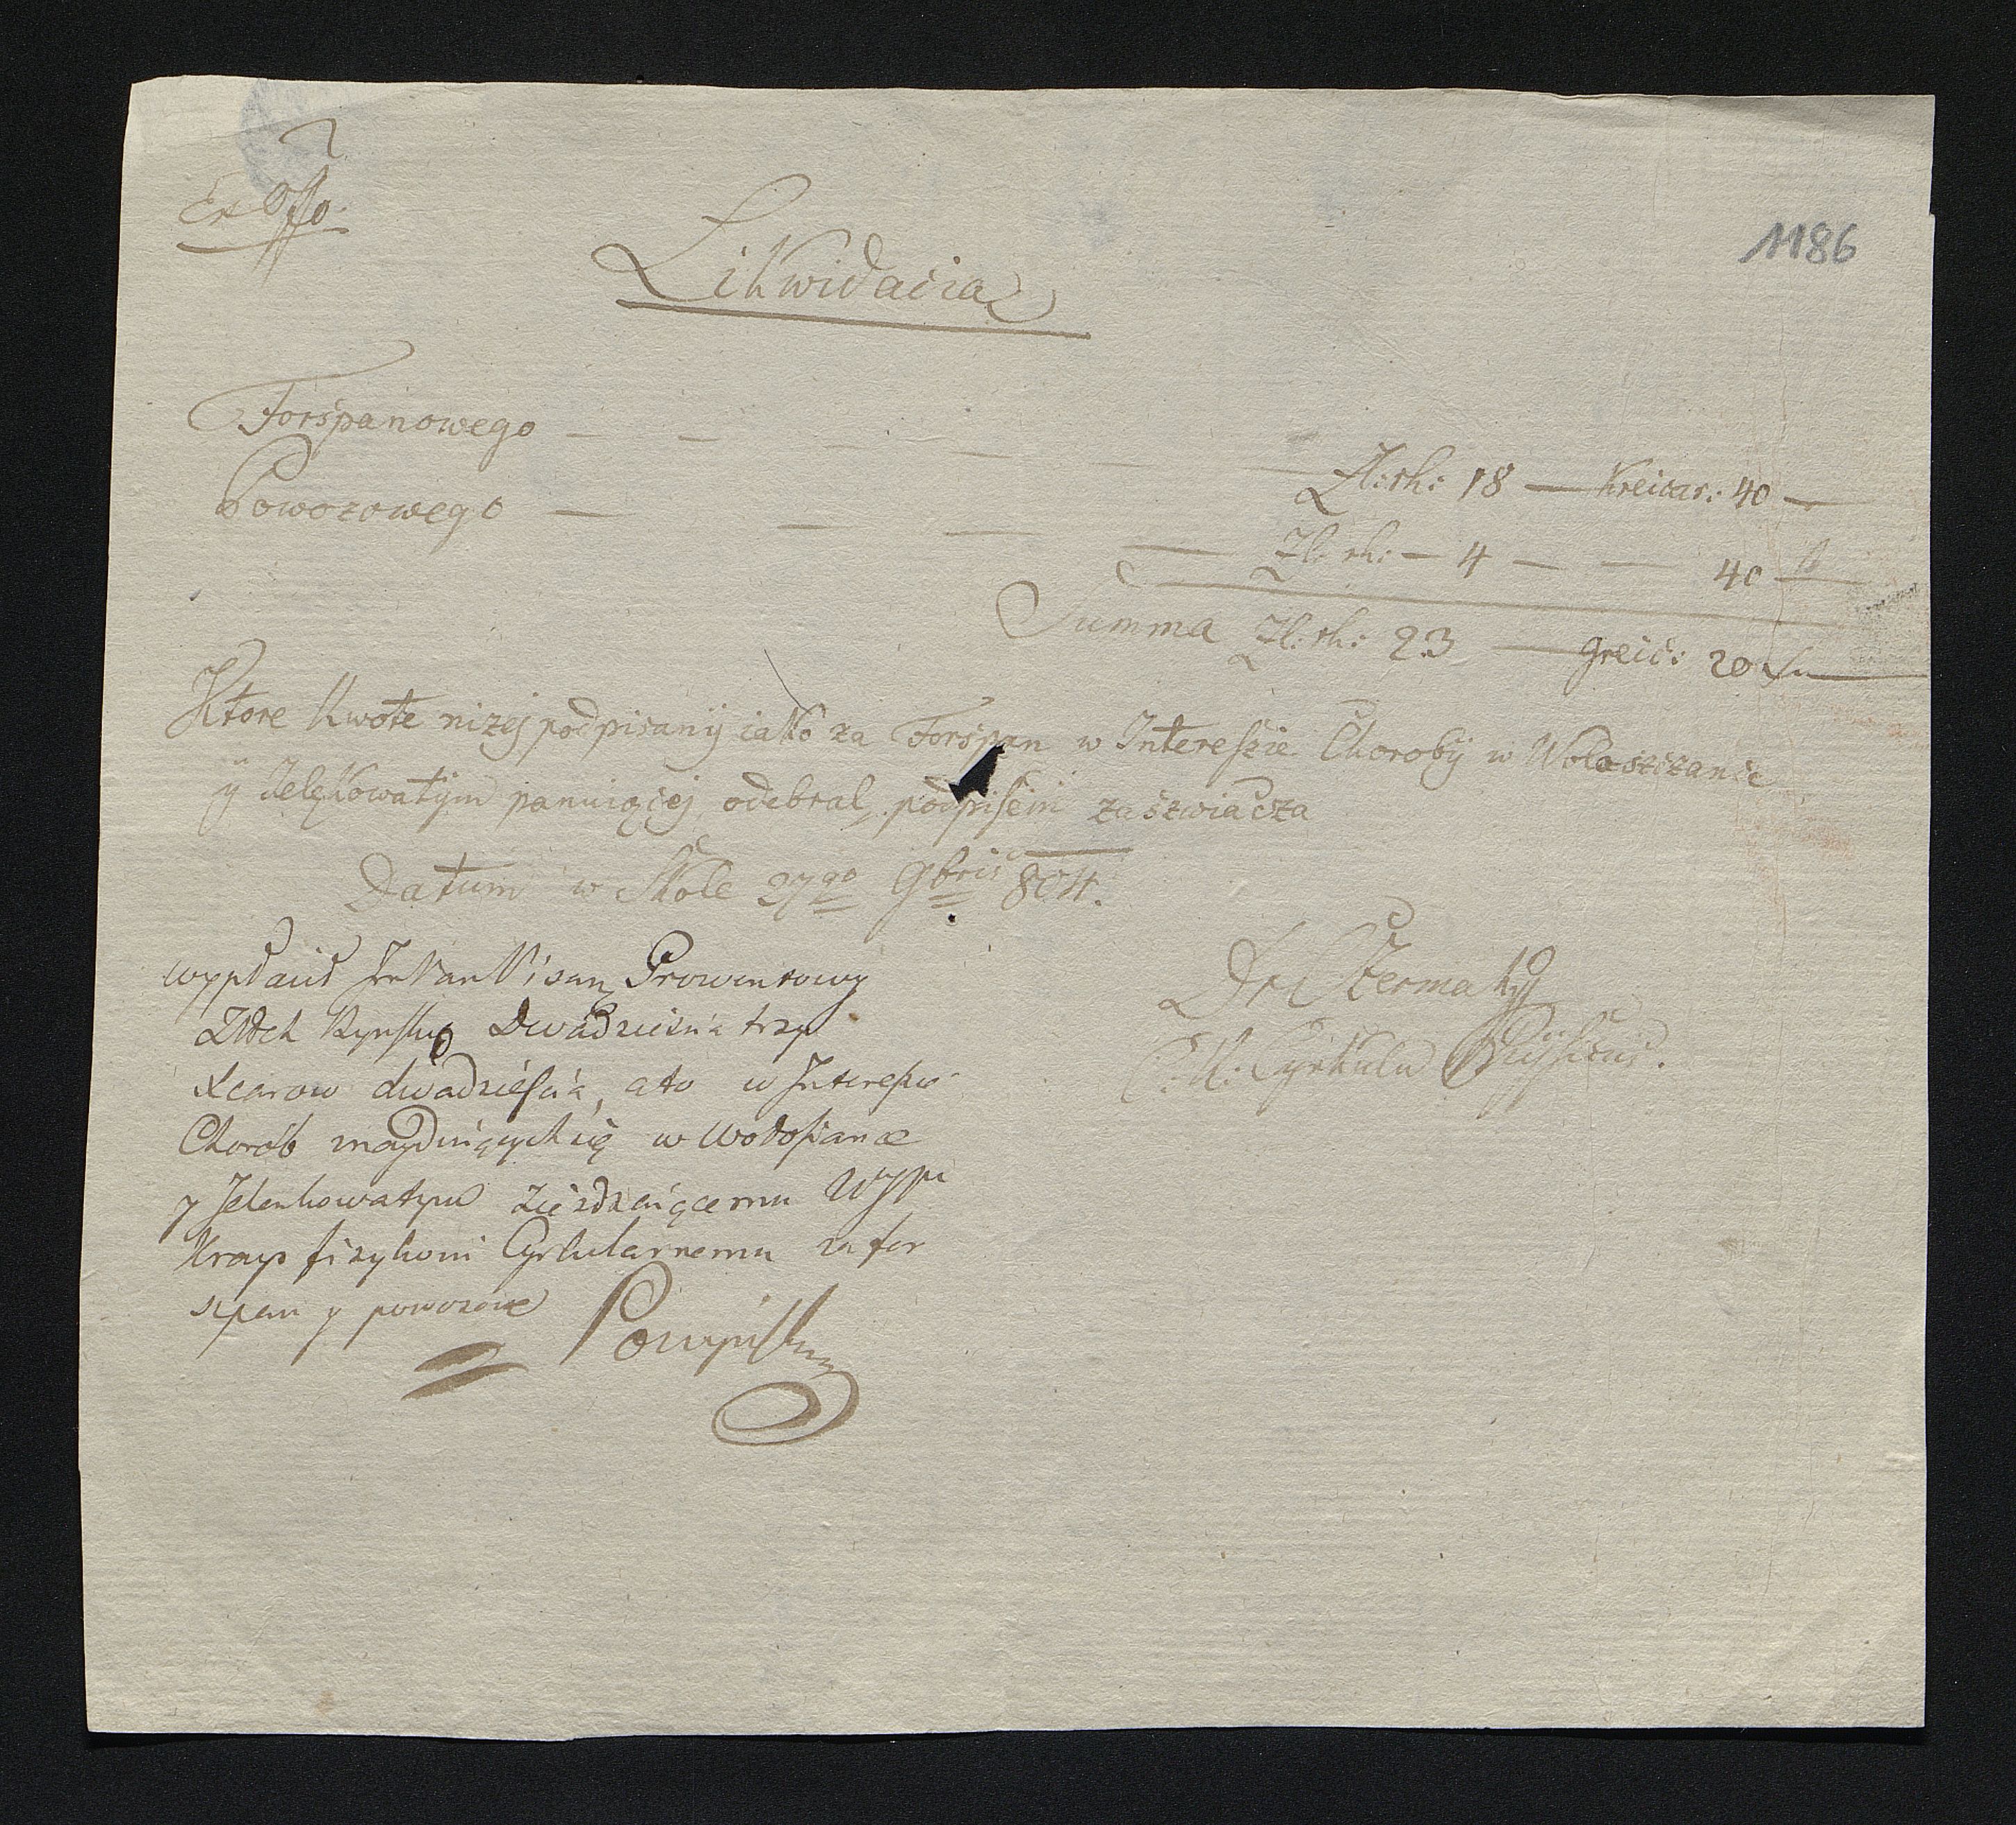 Ex Offo.
1186
Likwidacia
Forspanowego — — — — — — Zl: rh: 18 — Kreicar: 40 —
Powozowego — — — — Zl: rh: — 4 — — 40 —
Summa Zl: rh: 23 — Greic: 20
Ktore Kwote nizej podpisanÿ iako za Forspan w Interessie Chorobÿ w Wolosczanie
ÿ Jelękowatÿm panuiącej odebral, podpisem zaszwiacza
Datum w Skole 27go 9bris 804.
Dr Czermaky
C: K: Cyrkulu Phÿsicus.
wypłacić Prowentowy
Złłch Rynskich Dwadzieścia trzy
Xcarow dwadzieścia, a to w Interesie
Chorob znayduiących się w Wołosiance
y Jelenkowatym Zieżdzaiącemu
fizykowi Cyrkularnemu za for
szpan y powozowe